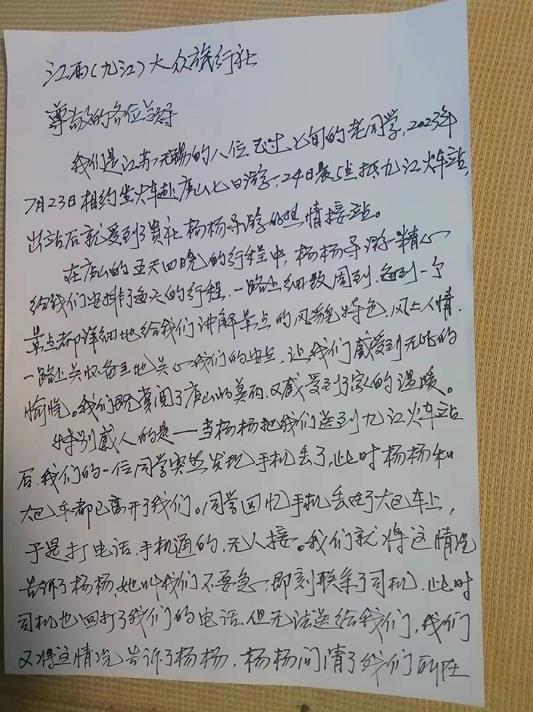 江西(九江)大众旅行社
尊敬的各位领导
我们是江苏无锡的八位年过七旬的老同学,2023年
7月23日相约坐火车赴庐山七日游,24日晨5点抵九江火车站,
出站后就受到了贵社杨杨导游的热情接站。
在庐山的五天四晚的行程中,杨杨导游精心
给我们安排了每天的行程,一路上细致周到,每到一个
景点都详细地给我们讲解景点的风貌特色,风土人情,
一路上关怀备至地关心我们的安全,让我们感受到无比的
愉悦。我们既赏阅了庐山的美丽,又感受到了家人的温暖。
特别感人的是——当杨杨把我们送到九江火车站
后,我们的一位同学突然发现手机丢了,此时杨杨和
大巴车都已离开了我们。同学回忆手机丢在了大巴车上,
于是打电话,手机通的,无人接。我们就将这情况
告诉了杨杨,她叫我们不要急,即刻联系了司机,此时
司机也回打了我们的电话,但无法送给我们,我们
又将这情况告诉了杨杨,杨杨问清了我们所在